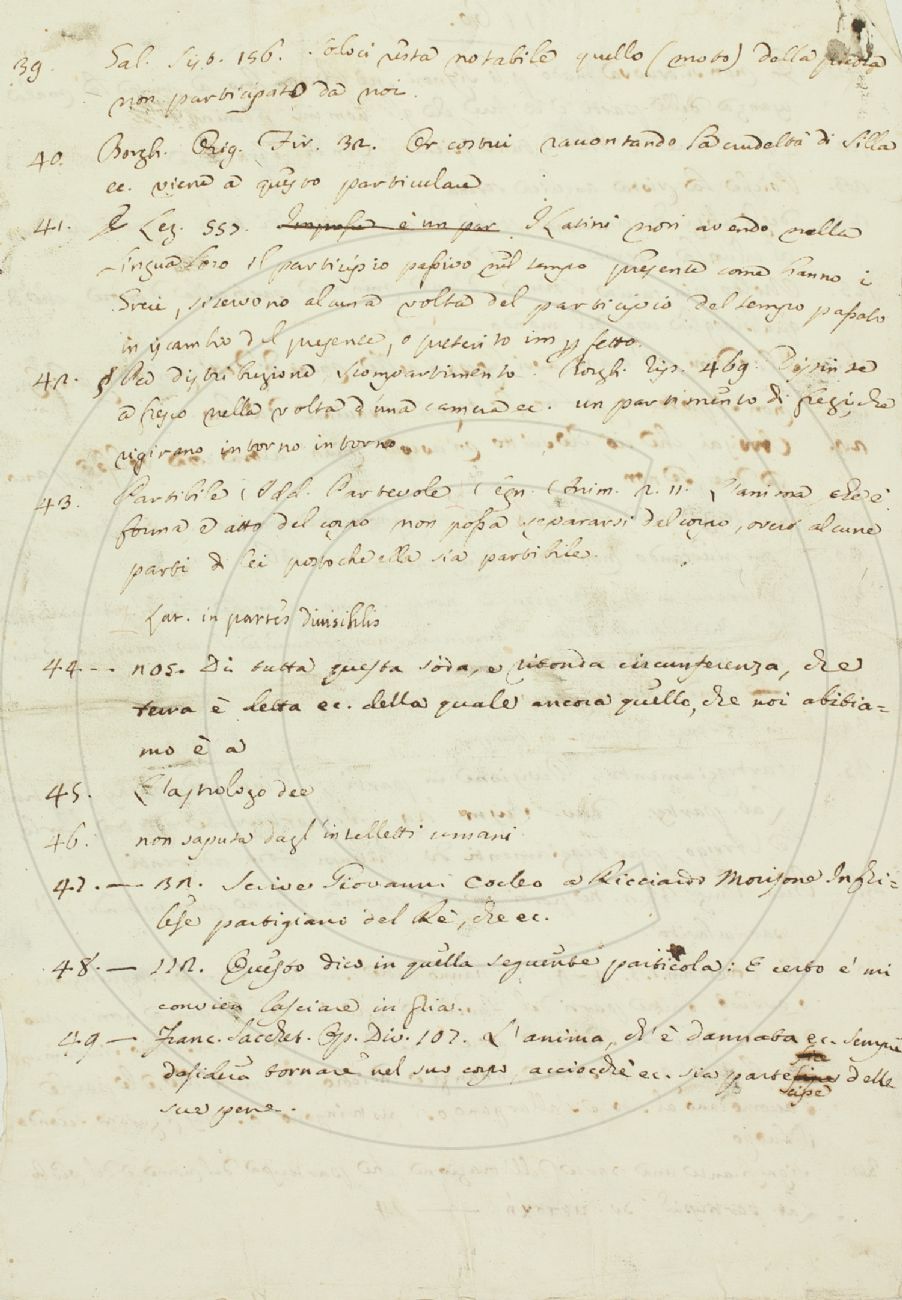 39. Gal. Sist. 156. Soloci resta notabile quello (moto) della pietra
non participato da noi.
40. Borgh. Orig. Fir. 32. Or costui raccontando la crudeltà di Silla
ec. viene a questo particulare
41. Lez. 557. Impresa è un par I Latini non avendo nella
lingua loro il participio passivo nel tempo presente come hanno i
Greci, si servono alcuna volta del participio del tempo passato
in iscambio del presente, o preterito imperfetto.
42. Per distribuzione, Scompartimento. Borgh. Rip. 469. Dipinse
a fresco nella volta d'una camera ec. un partimento di fregi, che
rigirano intorno intorno
43. Partibile Add. Partevole Segn. Anim. 2. 11. L'anima, che è
forma e atto del corpo non possa separarsi dal corpo, overo alcune
parti di lei postoche ella sia partibile.
Lat. in partes divisibilis
44 -- 105. Di tutta questa soda, e ritonda circunferenza, che
terra è detta ec. della quale ancora quello, che noi abitia=
mo è a
45. L'astrologo dee
46. non saputa dagl'intelletti umani
47. — 32. Scrive Giovanni Cocleo a Ricciardo Morisone Inghi=
lese partigiano del Re, che ec.
48. — 112. Questo dico in quella seguente particola: E certo e' mi
convien lasciare in Pria.
49 — Franc. Sacchet. Op. Div. 107. L'anima, ch'è dannata ec. sempre
desidera tornare nel suo corpo, acciocchè ec. sia partecipe delle
sue pene.